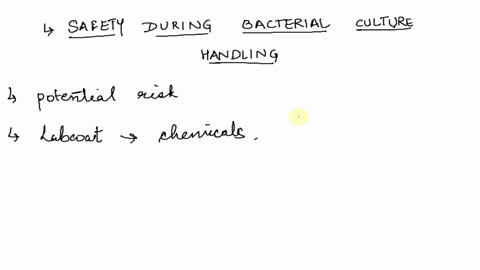 ↳ SAFETY DURING BACTERIAL CULTURE
HANDLING
↳ potential risk
↳ Labcoat → chemicals.